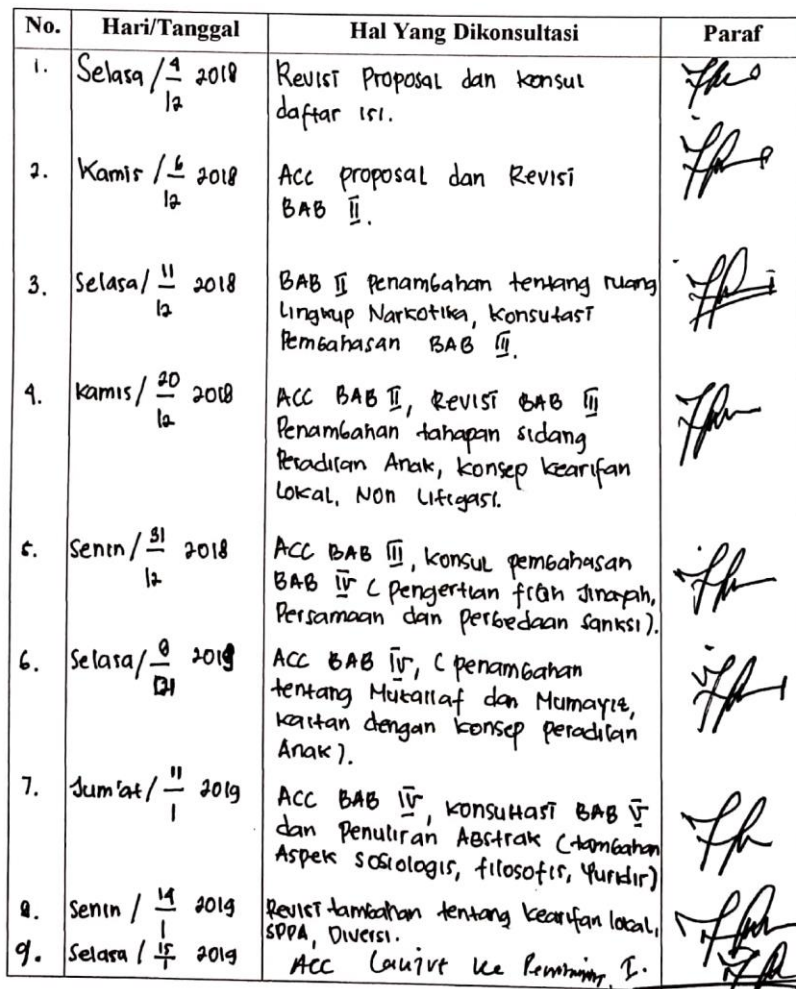 No. Hari/Tanggal Hal Yang Dikonsultasi Paraf
1. Selasa / 4/12 2018 Revisi Proposal dan konsul
daftar isi.
2. Kamis / 6/12 2018 Acc proposal dan Revisi
BAB II.
3. Selasa / 11/12 2018 BAB II penambahan tentang ruang
Lingkup Narkotika, konsutasi
Pembahasan BAB III.
4. Kamis / 20/12 2018 ACC BAB II, REVISI BAB III
Penambahan tahapan sidang
Peradilan Anak, konsep kearifan
Lokal, Non Litigasi.
5. Senin / 31/12 2018 ACC BAB III, konsul pembahasan
BAB IV (pengertian fiqh Jinayah,
Persamaan dan perbedaan sanksi).
6. Selasa / 8 2019 ACC BAB IV, (penambahan
tentang Mukallaf dan Mumayiz,
kaitan dengan konsep peradilan
Anak).
7. Jum'at / 11/1 2019 ACC BAB IV, konsultasi BAB V
dan Penulisan Abstrak (tambahan
Aspek sosiologis, filosofis, Yuridis)
8. Senin / 14/1 2019 Revisi tambahan tentang kearifan lokal,
SPPA, Diversi.
9. Selasa / 15/1 2019 ACC Lanjut ke Pembimbing I.